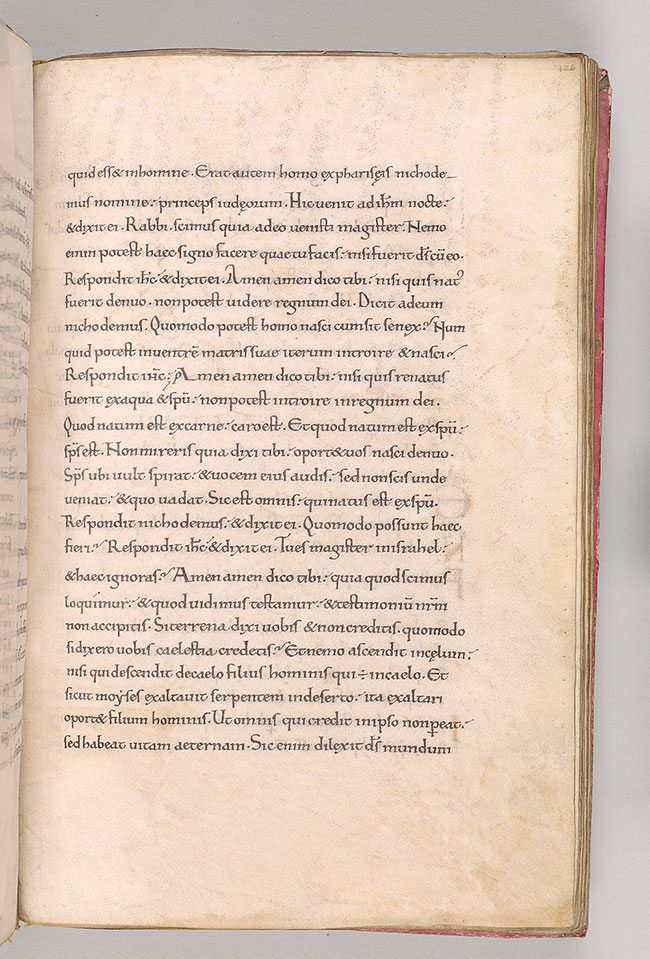 126
quid ess& inhomine. Erat autem homo expharisęis nichode_
mus nomine: princeps iudęorum. Hic venit adihm̄ nocte:
&dixit ei. Rabbi. scimus quia adeo venisti magister. Nemo
enim potest haec signo facere quae tu facis: nisi fuerit d̄s cū eo.
Respondit ihc̄ &dixit ei. Amen amen dico tibi: nisi quis natꝰ
fuerit denuo. non potest uidere regnum dei. Dicit adeum
nichodemus. Quomodo potest homo nasci cum sit senex? Num
quid potest inventrē matris suae iterum introire &nasci?
Respondit ihc̄; Amen amen dico tibi: nisi quis renatus
fuerit exaqua &spū: non potest introire inregnum dei.
Quod natum est excarne: caro est. Et quod natum est exspū:
sp̄s est. Non mireris quia dixi tibi: oport& vos nasci denuo.
Sp̄s ubi uult spirat: &uocem eius audis: sed non scis unde
veniat: &quo uadat. Sic est omnis: qui natus est exspū.
Respondit nichodemus: &dixit ei. Quomodo possunt haec
fieri? Respondit ihc̄ &dixit ei. Tu es magister inisrahel:
&haec ignoras? Amen amen dico tibi: quia quod scimus
loquimur: &quod uidimus testamur: &testimoniū nr̄m
non accipitis. Si terrena dixi uobis &non creditis. quomodo
si dixero uobis caelestia credetis? Et nemo ascendit incęlum:
nisi qui descendit decaelo filius hominis qui ÷ incaelo. Et
sicut moyses exaltauit serpentem indeserto: ita exaltari
oport& filium hominis. Ut omnis qui credit inipso non ꝑeat:
sed habeat uitam aeternam. Sic enim dilexit d̄s mundum